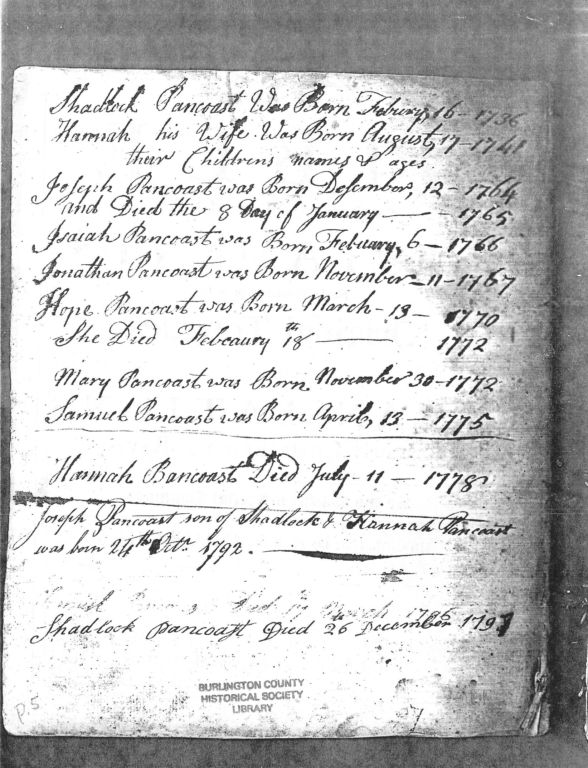 Shadlock Pancoast Was Born Febury, 16 - 1736
Hannah his Wife Was Born August, 17 - 1741
their Childrens names & ages.
Joseph Pancoast was Born Desember, 12 - 1764
and Died the 8 Day of January — - 1765
Isaiah Pancoast was Born Febuary, 6 - 1766
Jonathan Pancoast was Born November - 11 - 1767
Hope Pancoast was Born March - 13 - 1770
She Died Febeaury 18th — 1772
Mary Pancoast was Born November 30 - 1772
Samuel Pancoast was Born April, 13 - 1775
Hannah Bancoast Died July - 11 - 1778
Joseph Pancoast son of Shadlock & Hannah Pancoast
was born 24th Octr 1792. —
1795
Shadlock Pancoast Died 26th December
BURLINGTON COUNTY
HISTORICAL SOCIETY
LIBRARY
p.5